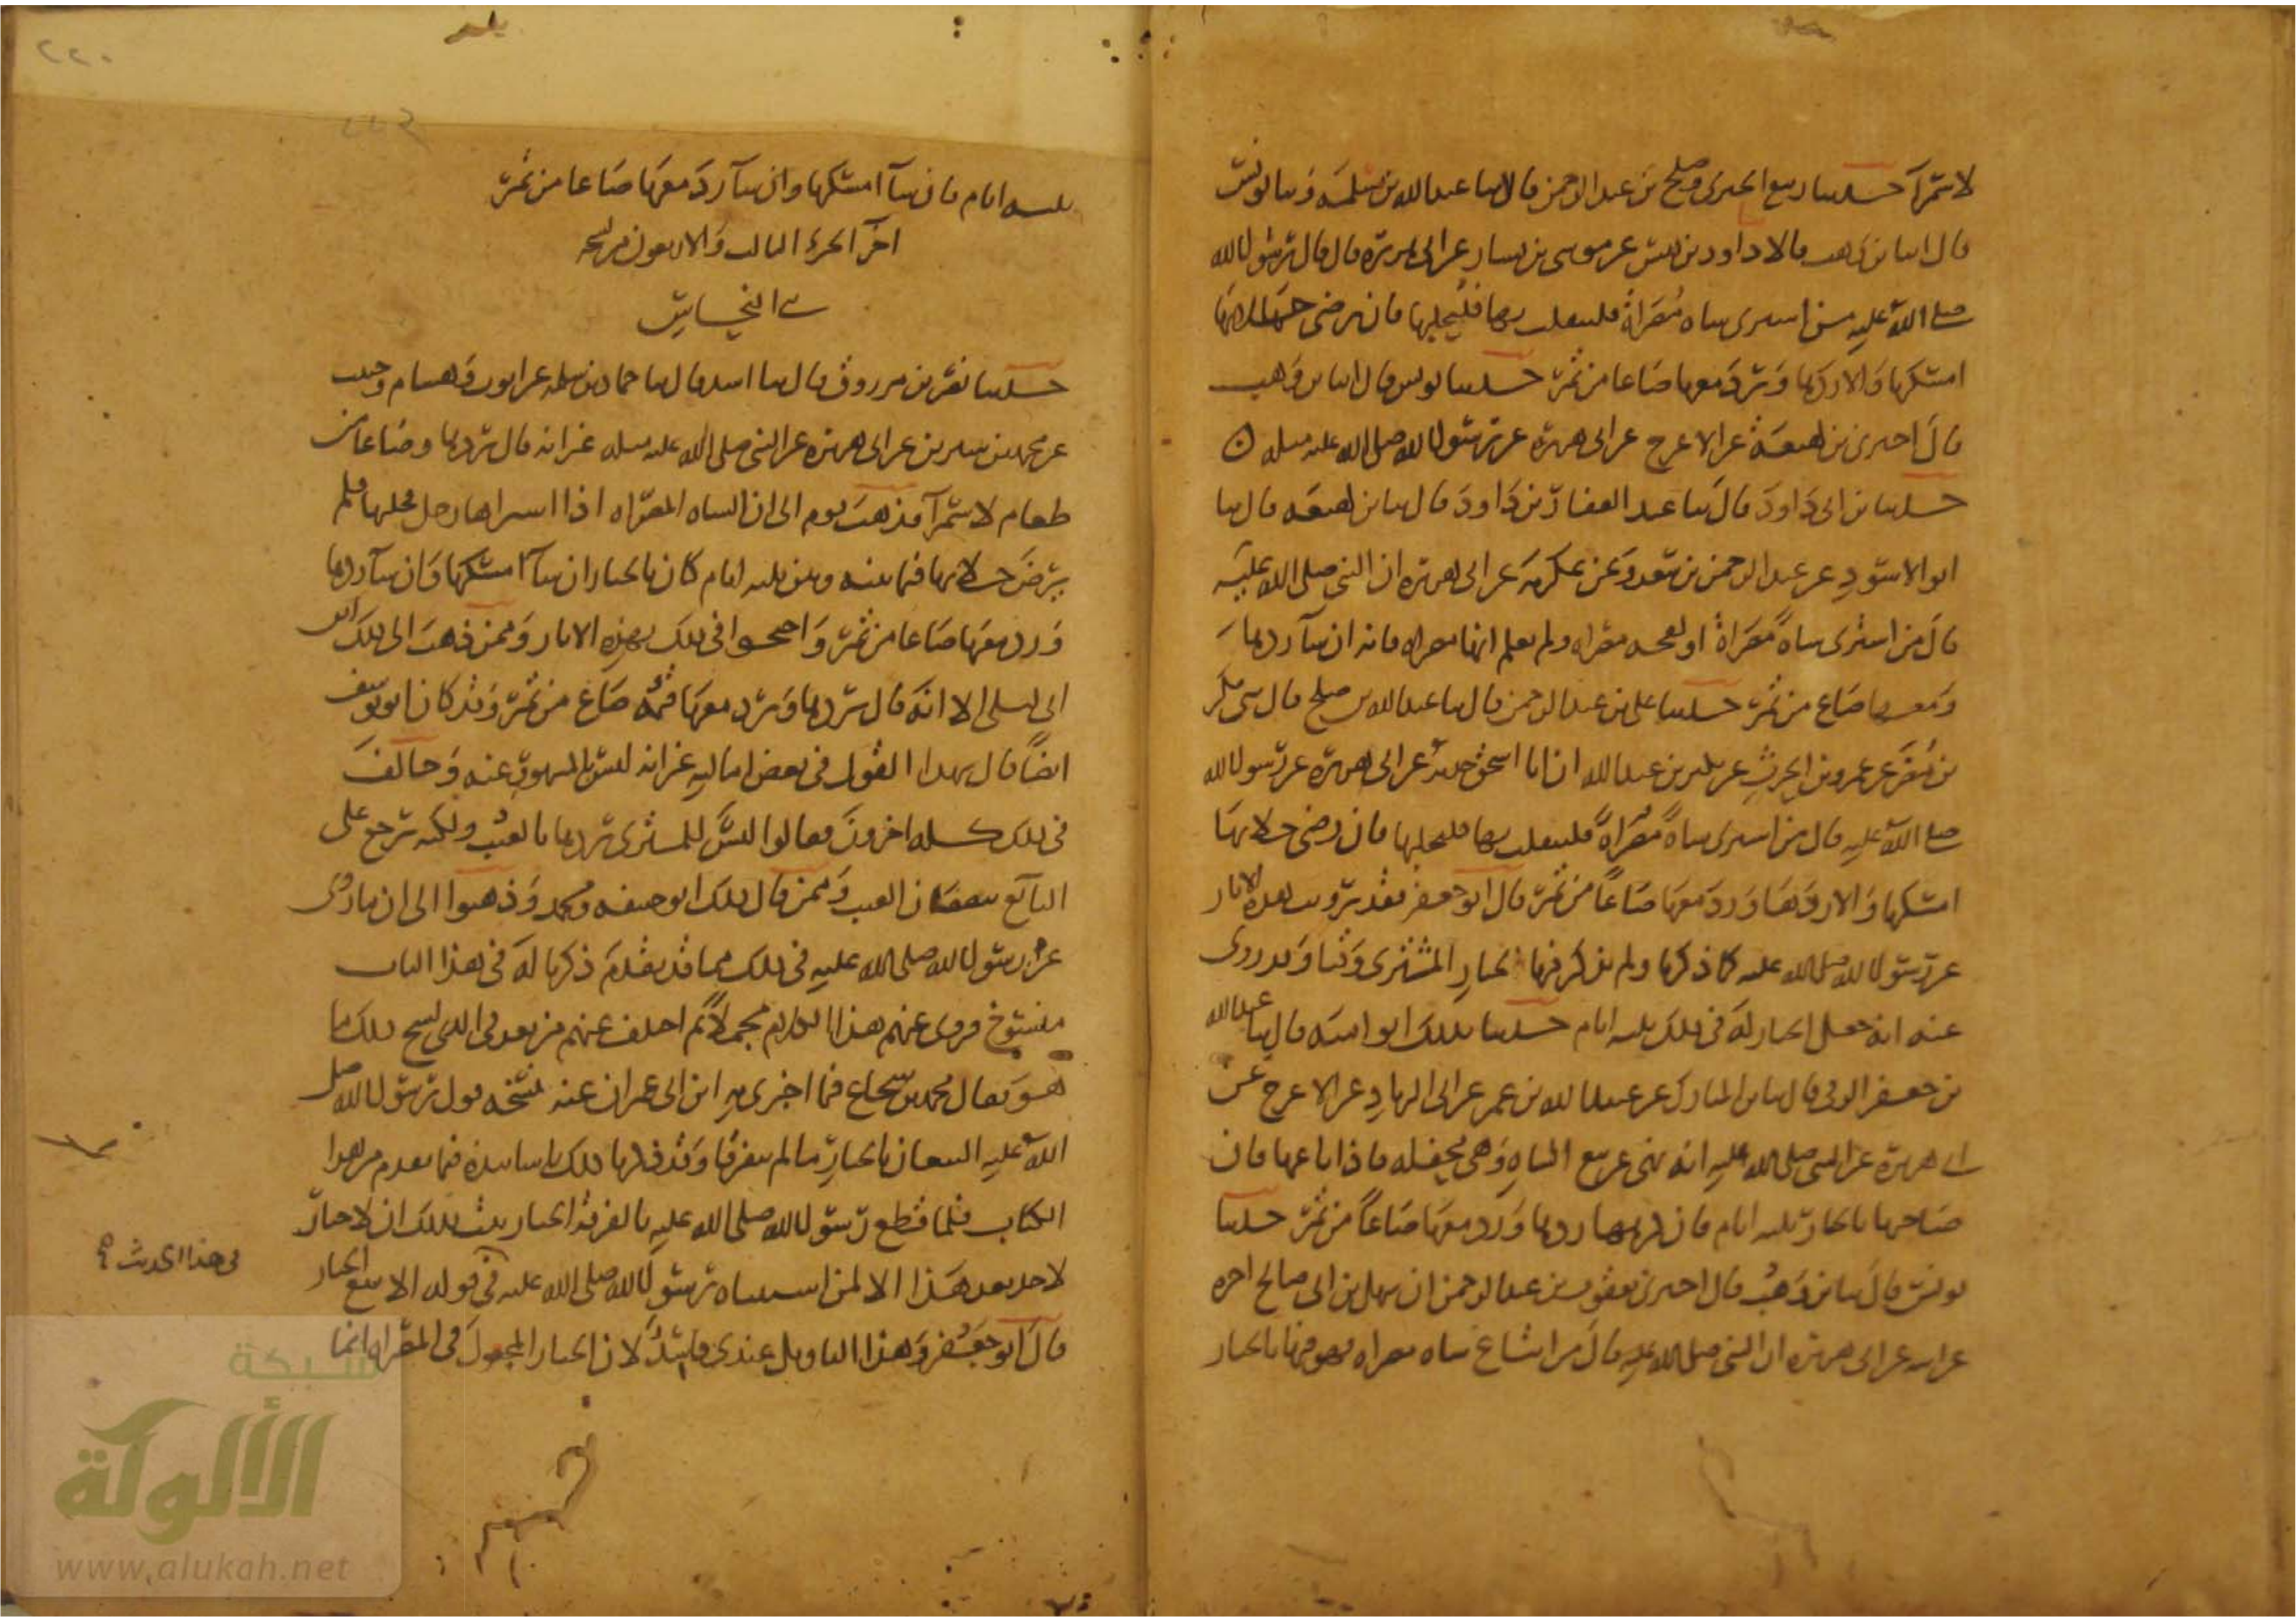 لا سمرآ حدثنا ربيع الجيزى وصلح بن عبد الرحمن قالا ثنا عبد الله بن مسلمة وثنا يونس
قال انبا بن وهب قالا ثنا داود بن قيس عن موسى بن يسار عن ابى هريرة قال قال رسول الله
صلى الله عليه من اشترى شاه مصراة فلينقلب بها فليحلبها فان رضى حلابها
امسكها والا ردها ورد معها صاعا من تمر حدثنا يونس قال انبا بن وهب
قال اخبرنى بن لهيعة عن الاعرج عن ابى هريرة عن رسول الله صلى الله عليه وسلم
حدثنا بن ابى داود قال ثنا عبد الغفار بن داود قال ثنا بن لهيعة قال ثنا
ابو الاسود عن عبد الرحمن بن سعد وعن عكرمة عن ابى هريرة ان النبى صلى الله عليه
قال من اشترى شاة مصراة او لقحة مصراه ولم يعلم انها مصراه فانه ان شآ ردها
ومعها صاع من تمر حدثنا على بن عبد الرحمن قال ثنا عبد الله بن صلح قال بكر
بن مضر عن عمرو بن الحرث عن بكير بن عبد الله ان ابا اسحق حدثه عن ابى هريرة عن رسول الله
صلى الله عليه قال من اشترى شاة مصراة فلينقلب بها فليحلبها فان رضى حلابها
امسكها والا ردها ورد معها صاعا من تمر قال ابو جعفر فقد رويت هذه الاثار
عن رسول الله صلى الله عليه كما ذكرنا ولم يذكر فيها لخيار المشترى وقتا وقد روى
عنه انه جعل الخيار له فى ذلك ثلثه ايام حدثنا بذلك ابو اميه قال ثنا عبد الله
بن جعفر الرقى قال ثنا بن المبارك عن عبيد الله بن عمر عن ابى الزناد عن الاعرج عن
ابى هريرة عن النبى صلى الله عليه انه نهى عن بيع الشاه وهى محفله فاذا باعها فان
صاحبها بالخيار ثلثه ايام فان كرهها ردها ورد معها صاعا من تمر حدثنا
يونس قال ثنا بن وهب قال اخبرنى يعقوب بن عبد الرحمن ان سهل بن ابى صالح اخبره
عن ابيه عن ابى هريرة ان النبى صلى الله عليه قال من ابتاع شاه مصراه فهو فيها بالخيار
ثلثه ايام فان شآ امسكها وان شآ ردها ومعها صاعا من تمر
اخر الجزء الثالث والاربعون من نسخة
حدثنا نصر بن مرزوق قال ثنا اسد قال ثنا حماد بن سلمة عن ايوب وهشام وحبيب
عن محمد بن سيرين عن ابى هريرة عن النبى صلى الله عليه وسلم غير انه قال يردها وصاعا من
طعام لا سمرآ فذهب قوم الى ان الشاه المصراه اذا اشتراها رجل فحلبها فلم
يرض حلابها فيما بينه وبين ثلثه ايام كان بالخيار ان شآ امسكها وان شآ ردها
ورد معها صاعا من تمر واحتجوا فى ذلك بهذه الاثار وممن ذهب الى ذلك ابن
ابى ليلى الا انه قال يردها ويرد معها قيمة صاع من تمر وقد كان ابو يوسف
ايضا قال بهذا القول فى بعض اماليه غير انه ليس بالمشهور عنه وخالف
فى ذلك كله اخرون فقالوا ليس للمشترى ردها بالعيب ولكنه يرجع على
البائع بنقصان العيب وممن قال ذلك ابو حنيفه ومحمد وذهبوا الى ان ما روى
عن رسول الله صلى الله عليه فى ذلك مما قد تقدم ذكرنا له فى هذا الباب
منسوخ فروى عنهم هذا الكلام مجملا ثم اختلف عنهم من بعد فى الذى نسخ ذلك ما
هو فقال محمد بن شجاع فيما اخبرنى به ابن ابى عمران عنه نسخه قول رسول الله صلى
الله عليه البيعان بالخيار ما لم يتفرقا وقد ذكرنا ذلك باسانيده فيما تقدم من هذا
الكتاب فلما قطع رسول الله صلى الله عليه بالفرقة الخيار ثبت بذلك ان لا خيار
لاحد بعد هذا الا لمن استثناه رسول الله صلى الله عليه فى قوله الا بيع الخيار
فى هذا الحديث
قال ابو جعفر وهذا التاويل عندى فاسد لان الخيار المجعول فى المصراه انما
شبكة
الألوكة
www.alukah.net